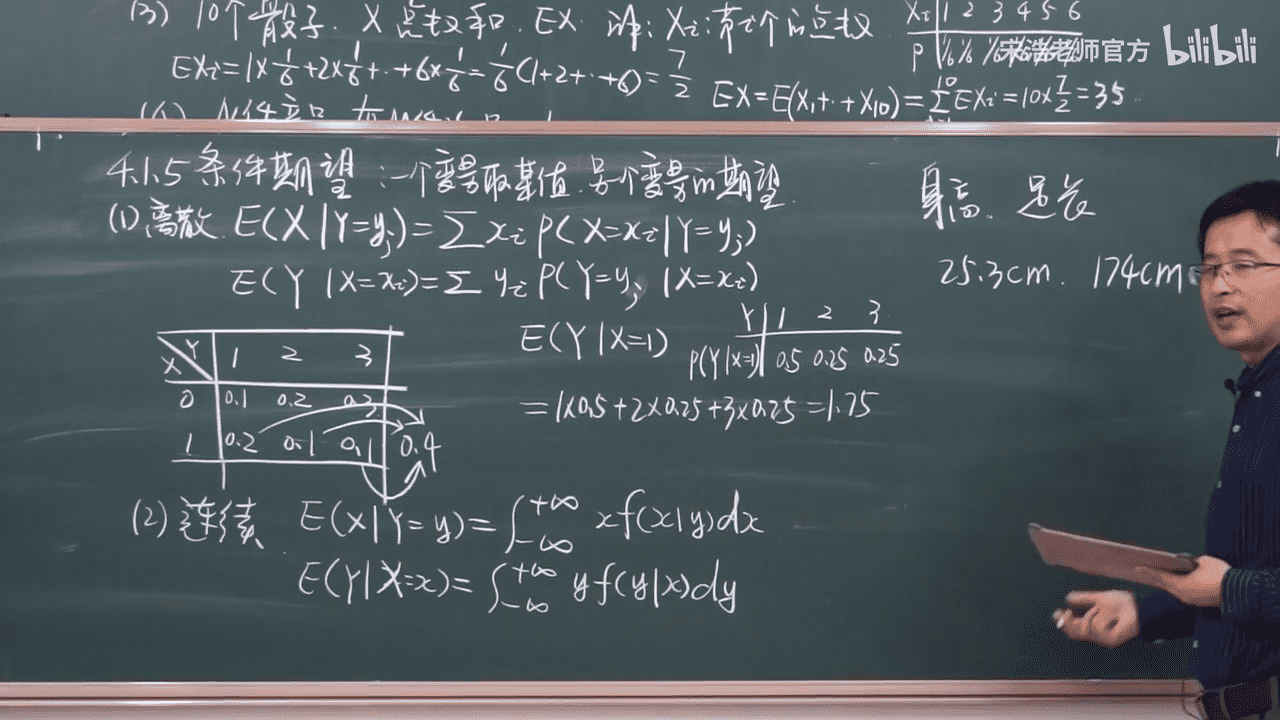 (3) 10个骰子. X 点数和. EX. 解: Xi: 第i个的点数.
Xi 1 2 3 4 5 6
P 1/6 1/6 1/6 1/6 1/6 1/6
宋浩老师官方 bilibili
EXi=1×1/6+2×1/6+··+6×1/6=1/6(1+2+··+6)=7/2
EX=E(X1+··+X10)=∑EXi=10×7/2=35
4.1.5 条件期望:一个变量取某值.另个变量的期望.
(1)离散. E(X|Y=yj)=∑xi P(X=xi|Y=yj)
E(Y|X=xi)=∑yi P(Y=yj|X=xi)
身高. 足长
25.3cm. 174cm
X Y 1 2 3
0 0.1 0.2 0.3
1 0.2 0.1 0.1 0.4
E(Y|X=1)
Y 1 2 3
P(Y|X=1) 0.5 0.25 0.25
=1×0.5+2×0.25+3×0.25=1.75
(2)连续. E(X|Y=y)=∫_{-∞}^{+∞} xf(x|y)dx
E(Y|X=x)=∫_{-∞}^{+∞} yf(y|x)dy